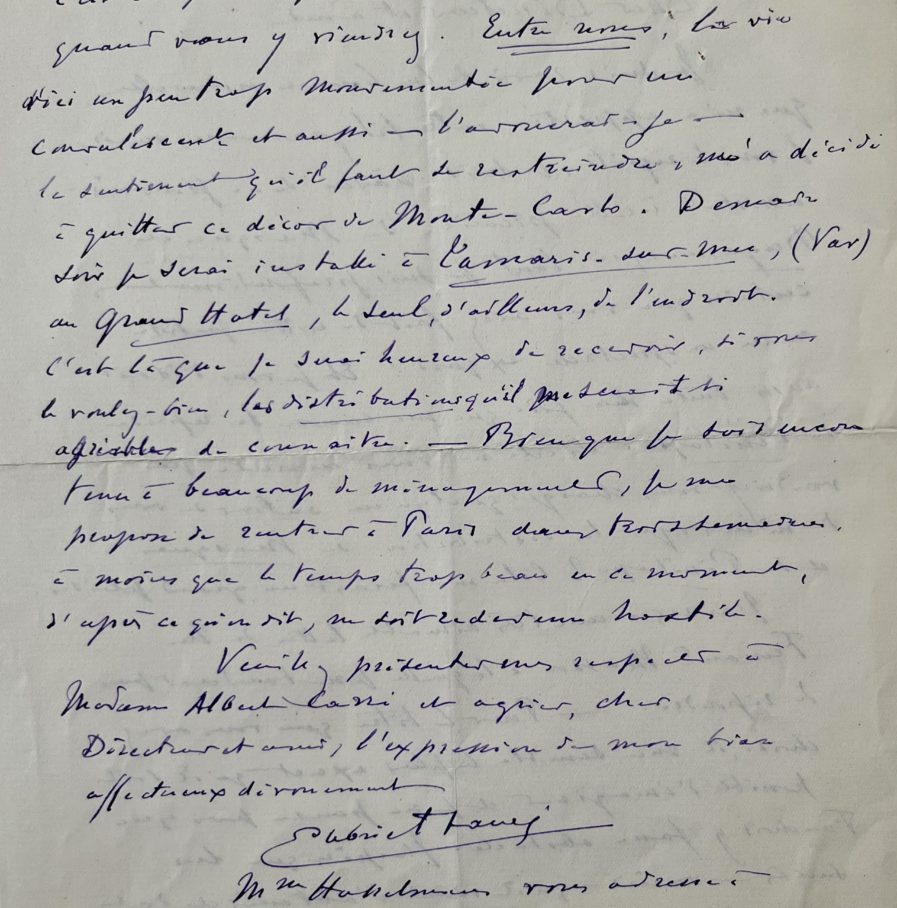 quand vous y viendrez. Entre nous, la vie
d'ici un peu trop mouvementée pour un
convalescent et aussi — l'avouerai-je —
le sentiment qu'il faut se restreindre, m'a décidé
à quitter ce décor de Monte-Carlo. Demain
soir je serai installé à Tamaris-sur-mer, (Var)
au Grand Hotel, le seul, d'ailleurs, de l'endroit.
C'est là que je serai heureux de recevoir, si vous
le voulez-bien, les distributions qu'il me serait si
agréable de connaître. — Bien que je sois encore
tenu à beaucoup de ménagements, je me
propose de rentrer à Paris dans trois semaines,
à moins que le temps trop beau en ce moment,
d'après ce qu'on dit, ne soit redevenu hostile.
Veuillez présenter mes respects à
Madame Albert Carré et agréer, cher
Directeur et ami, l'expression de mon bien
affectueux dévouement
Gabriel Fauré
Mme Hasselmans vous adresse à